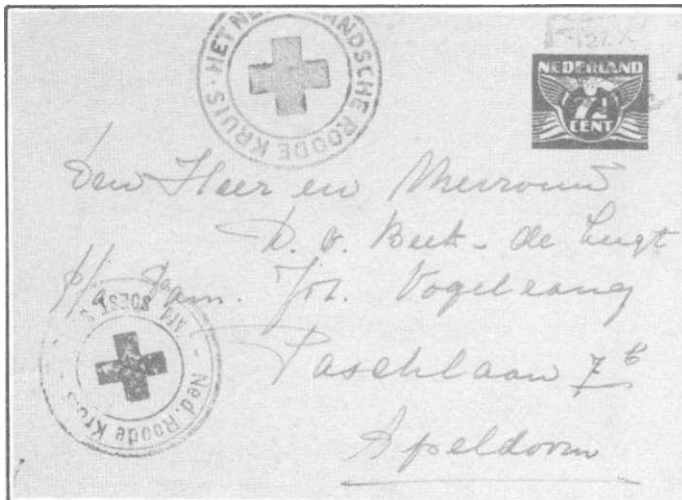 HET NEDERLANDSCHE ROODE KRUIS
NEDERLAND
7½
CENT
den Heer en Mevrouw
D. v. Beek - de Lugt
p/a Fam. Joh. Vogelzang
Paschlaan 7b
Apeldoorn
Ned. Roode Kruis - Afd. SOEST -